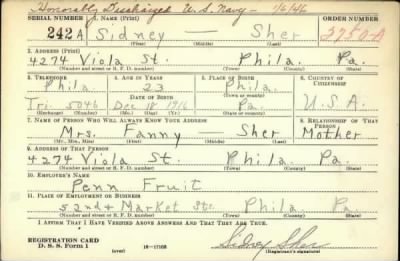 Honorably Discharged U.S. Navy - 1/6/46
SERIAL NUMBER 1. NAME (Print) ORDER NUMBER
242 A Sidney — Sher 3750-A
(First) (Middle) (Last)
2. ADDRESS (Print)
4274 Viola St. Phila. Pa.
(Number and street or R. F. D. number) (Town) (County) (State)
3. TELEPHONE 4. AGE IN YEARS 5. PLACE OF BIRTH 6. COUNTRY OF CITIZENSHIP
Phila. 23 Phila.
DATE OF BIRTH (Town or county)
Tri. 5046 Dec 18 1916 Pa. U.S.A.
(Exchange) (Number) (Mo.) (Day) (Yr.) (State or country)
7. NAME OF PERSON WHO WILL ALWAYS KNOW YOUR ADDRESS 8. RELATIONSHIP OF THAT PERSON
Mrs. Fanny — Sher Mother
(Mr., Mrs., Miss) (First) (Middle) (Last)
9. ADDRESS OF THAT PERSON
4274 Viola St. Phila. Pa.
(Number and street or R. F. D. number) (Town) (County) (State)
10. EMPLOYER'S NAME
Penn Fruit
11. PLACE OF EMPLOYMENT OR BUSINESS
52nd & Market Sts. Phila Pa.
(Number and street or R. F. D. number) (Town) (County) (State)
I AFFIRM THAT I HAVE VERIFIED ABOVE ANSWERS AND THAT THEY ARE TRUE.
REGISTRATION CARD
D. S. S. Form 1 (over) 16-17105 Sidney Sher
(Registrant's signature)